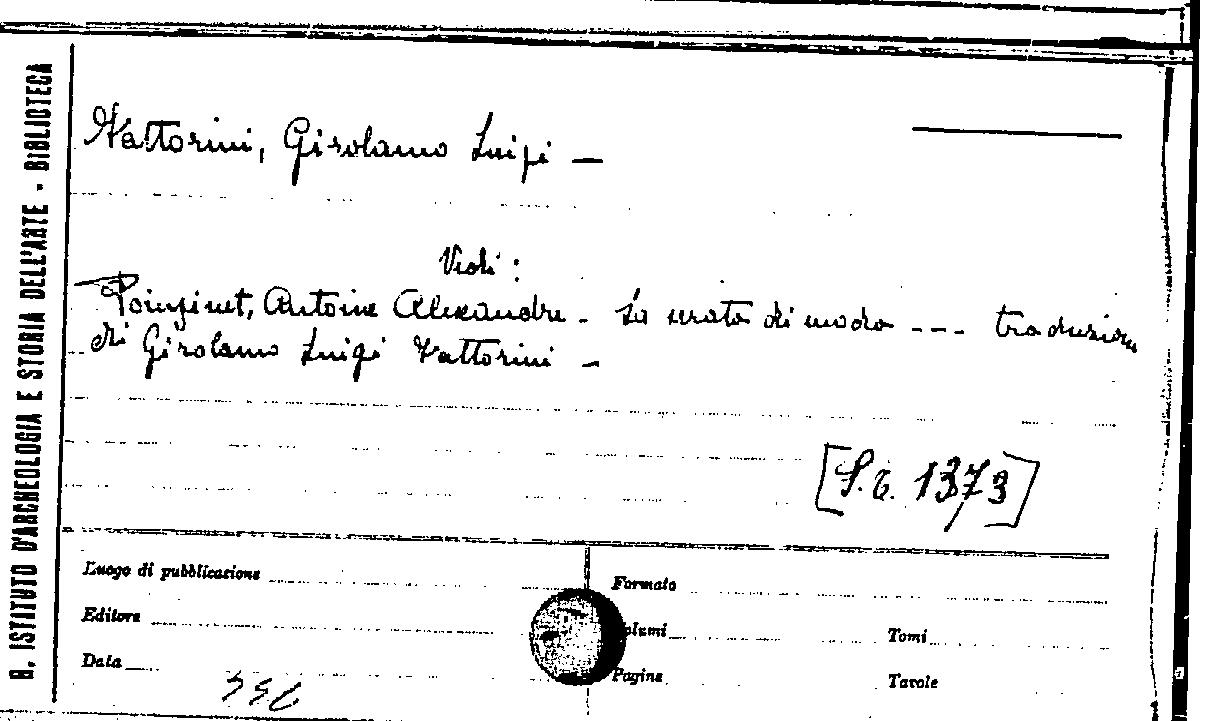 B. ISTITUTO D'ARCHEOLOGIA E STORIA DELL'ARTE - BIBLIOTECA
Fattorini, Girolamo Luigi —
Vedi :
Poinsinet, Antoine Alexandre - La serata di moda --- traduzione
di Girolamo Luigi Fattorini —
[S.B. 1373]
Luogo di pubblicazione
Formato
Editore
Volumi
Tomi
Data
Pagine
Tavole